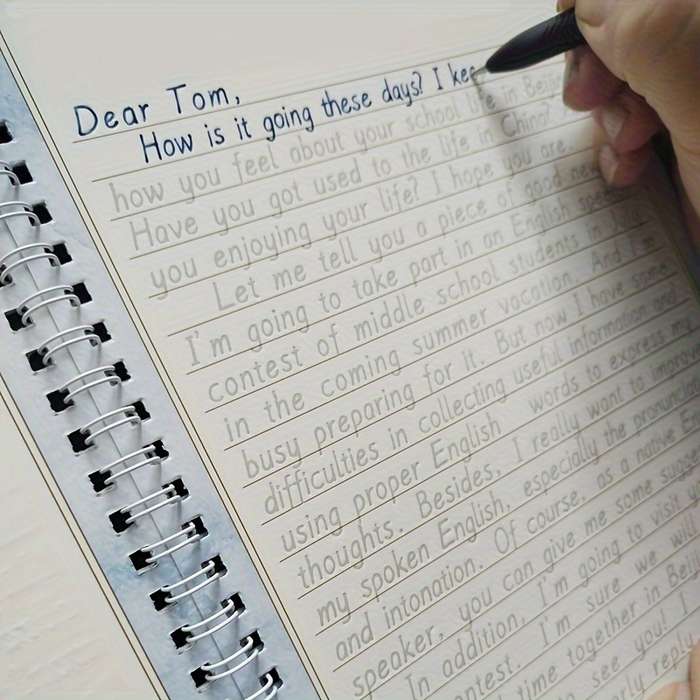 Dear Tom,
How is it going these days? I kee
how you feel about your school life in Beijin
Have you got used to the life in China?
you enjoying your life? I hope you are.
Let me tell you a piece of good ne
I'm going to take part in an English spee
contest of middle school students in
in the coming summer vacation. And I'm
busy preparing for it. But now I have some
difficulties in collecting useful information and
using proper English words to express my
thoughts. Besides, I really want to
my spoken English, especially the pronunc
and intonation. Of course, as a native E
speaker, you can give me some
In addition, I'm going to visit
contest. I'm sure we wil
time together in Bei
see you!